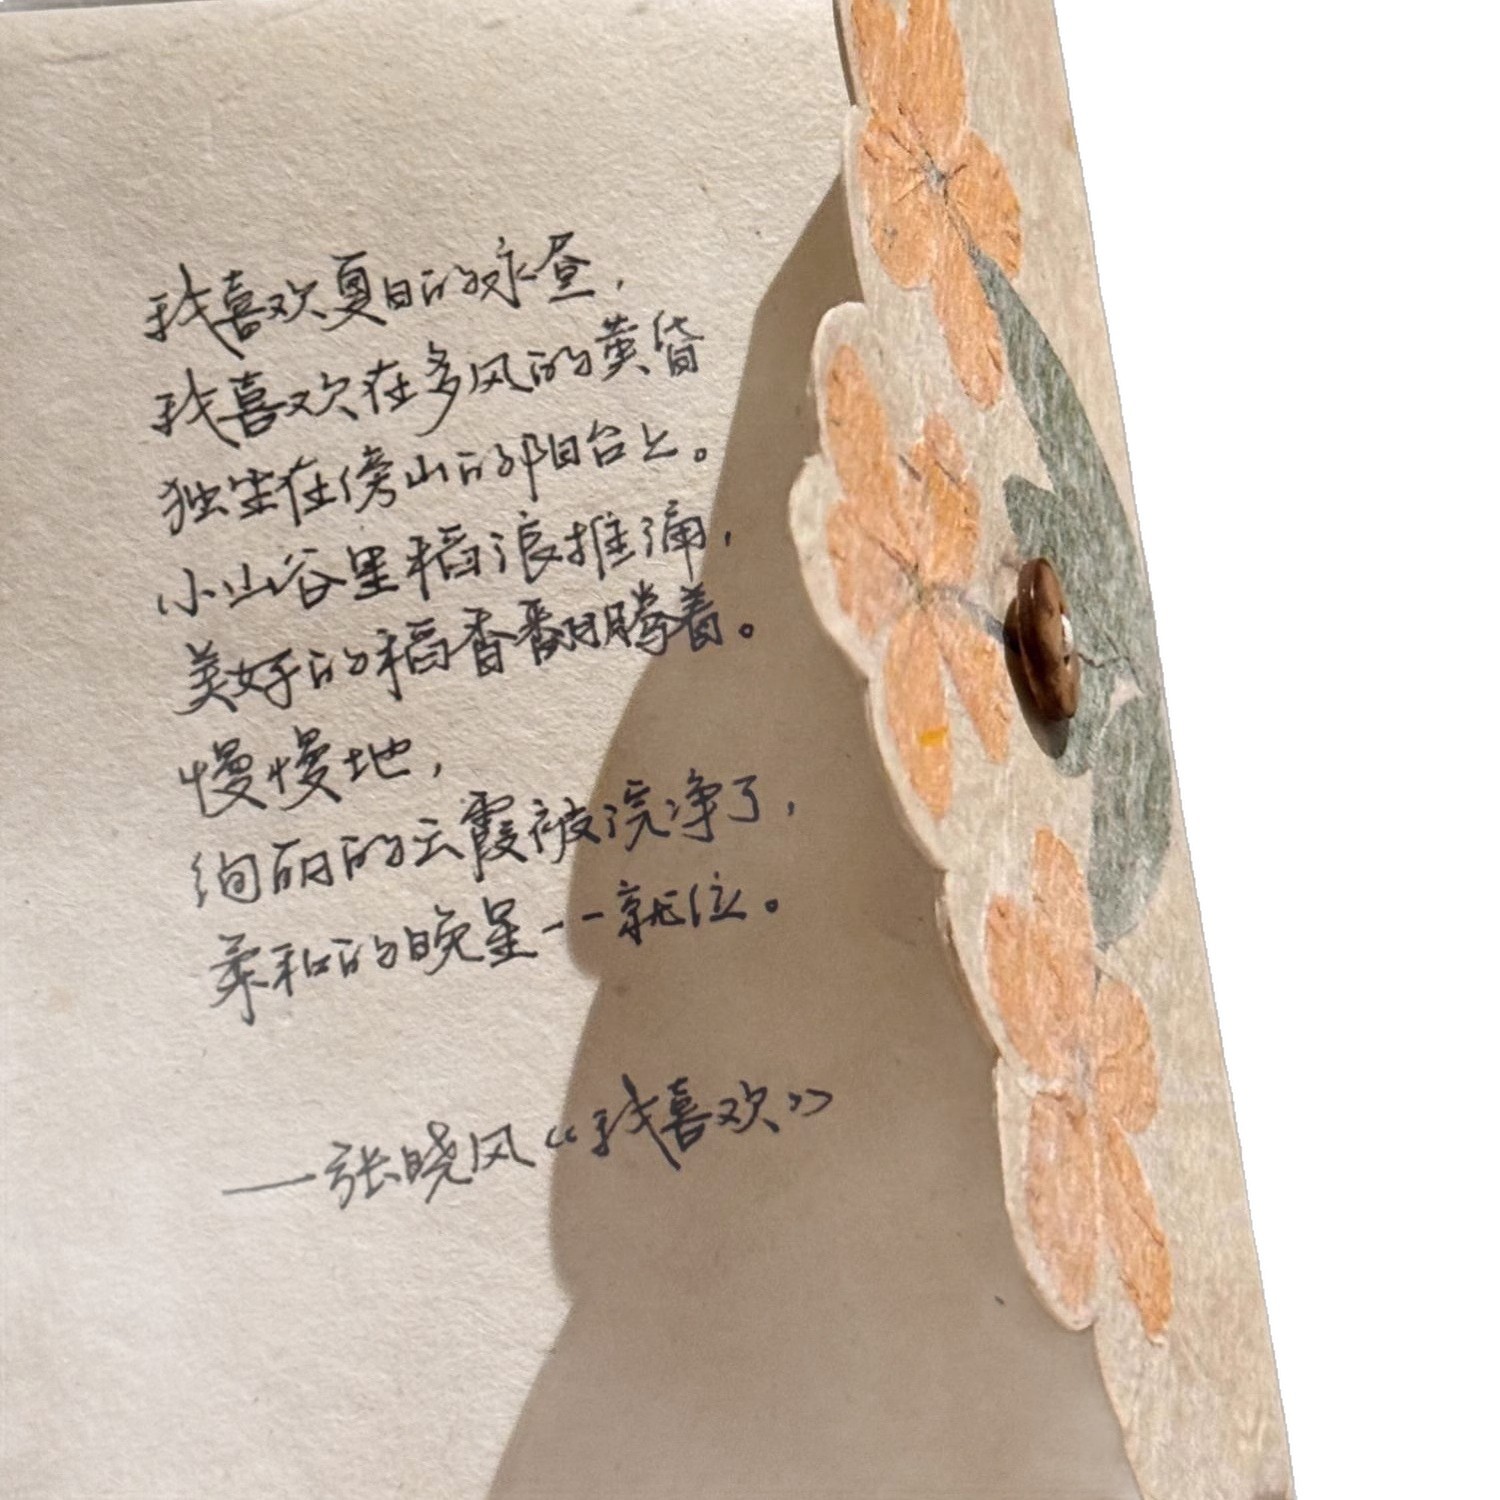 我喜欢夏日的永昼，
我喜欢在多风的黄昏
独坐在傍山的阳台上。
小山谷里稻浪推涌，
美好的稻香翻腾着。
慢慢地，
绚丽的云霞被浣净了，
柔和的晚星一一就位。
—张晓风《我喜欢》